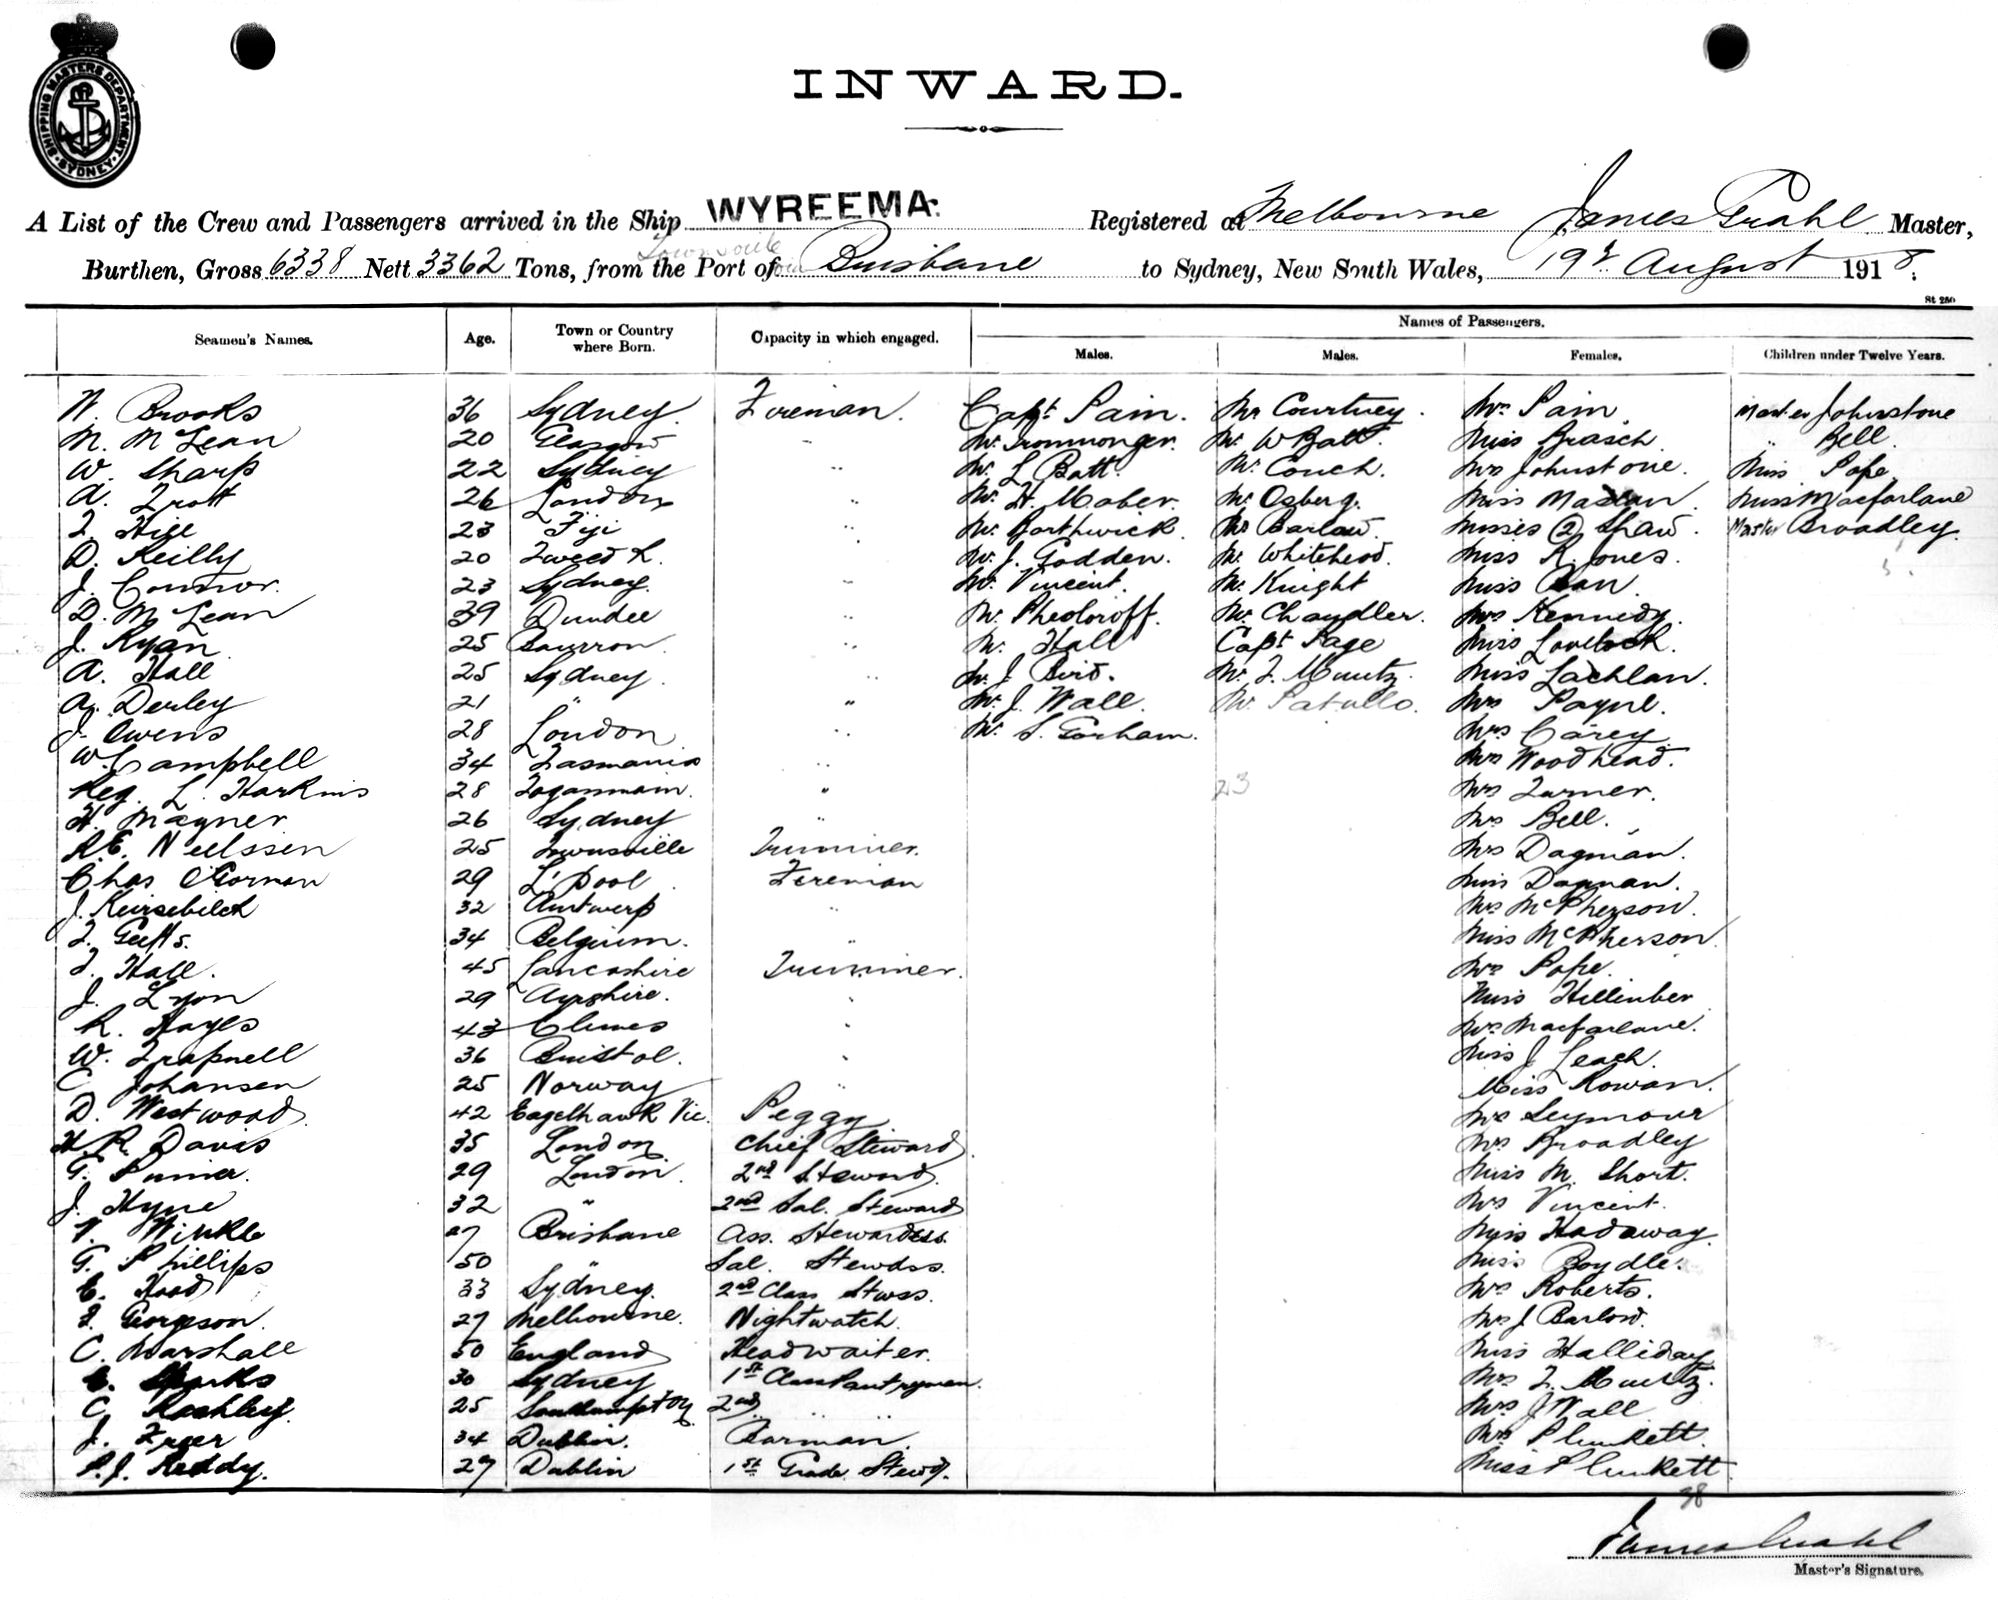 SHIPPING MASTERS DEPARTMENT SYDNEY
INWARD.
A List of the Crew and Passengers arrived in the Ship WYREEMA. Registered at Melbourne James Grahl Master,
Burthen, Gross 6338 Nett 3362 Tons, from the Port of Townsville via Brisbane to Sydney, New South Wales, 19th August 1918.
St 280
Seamen's Names. Age. Town or Country where Born. Capacity in which engaged. Names of Passengers.
Males. Males. Females. Children under Twelve Years.
W. Brooks 36 Sydney Fireman. Capt Pain. Mr Courtney. Mrs Pain Master Johnstone
M. McLean 20 Glasgow " Mr. Ironmonger. Mr. W Batt. Miss Brasch " Bell.
W. Sharp 22 Sydney " Mr. L Batt. Mr. Couch. Mrs Johnstone. Miss Pope
A. Trott 26 London " Mr. H. Mober. Mr. Osberg. Miss Miss Macfarlane
F. Hill 23 Fiji " Mr. Borthwick. Mr Barlow. Misses (2) Shaw. Master Broadley
D. Reilly 20 Tweed R. " Mr. J. Godden. Mr. Whitehead. Miss R. Jones.
J. Connor. 23 Sydney. " Mr. Vincent. Mr. Knight Miss
D. McLean 39 Dundee " Mr. Pheoloroff. Mr. Chandler. Mrs Kennedy.
J. Ryan 25 " Mr. Hall Capt Page Miss Lovelock.
A. Hall 25 Sydney. " Mr. J Bird. Mr. F. Muntz. Miss Lachlan.
A. Derley 21 " " Mr. J. Wall. Mr. Patullo. Mrs Payne.
J. Owens 28 London " Mr. S. Gorham. Mrs Carey
W. Campbell 34 Tasmania " Mrs Woodhead.
Reg. L. Harkins 28 " 23 Mrs Turner.
H. Magner 26 Sydney " Mrs Bell.
R.E. Neilssen 25 Townsville Trimmer. Mrs Dagman.
Chas O'Gorman 29 L'pool Fireman Miss Dagman.
J. Keirsebilck 32 Antwerp " Mrs McPherson.
F. Geefts. 34 Belgium. " Miss McPherson.
F. Hall. 45 Lancashire Trimmer. Mrs Pope.
J. Lyon 29 Ayrshire. " Miss Hillinber
R. Hayes 43 " Mrs Macfarlane.
W. Trapnell 36 Bristol. " Miss J Leach.
C Johansen 25 Norway " Miss Rowan.
D. Westwood 42 Eaglehawk Vic. Peggy Mrs Seymour
H. R. Davis 35 London Chief Steward Mrs Broadley
G. 29 London. 2nd Steward. Miss M. Short.
J. Hyne 32 " 2nd Sal. Steward Mrs Vincent.
V. Winkle 27 Brisbane Ass. Stewardess. Miss Hadaway.
G. Phillips 50 " Sal. Stewdss. Miss Boydle.
E. Hood 33 Sydney. 2nd Class Stwss. Mrs Roberts.
F. Gorgeson. 27 Melbourne. Nightwatch. Mrs J Barlow.
C. Marshall 50 England Headwaiter. Miss Halliday
E. Sparks 30 Sydney 1st Class Pantryman. Mrs F. Muntz.
C. Rashley 25 Southampton 2nd " " Mrs J Wall
J. Freer 34 Dublin. Barman. Mrs Plunkett.
P.J. Reddy. 27 Dublin 1st Grade Stewd. Miss Plunkett.
38
James Grahl
Master's Signature.